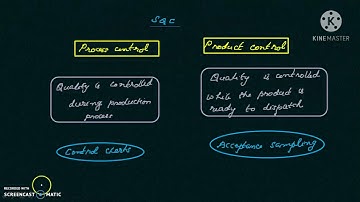 SQC
KINEMASTER
Process control
Product control
Quality is controlled
during production
process
Quality is controlled
while the product is
ready to dispatch
Control charts
Acceptance sampling
RECORDED WITH
SCREENCAST MATIC